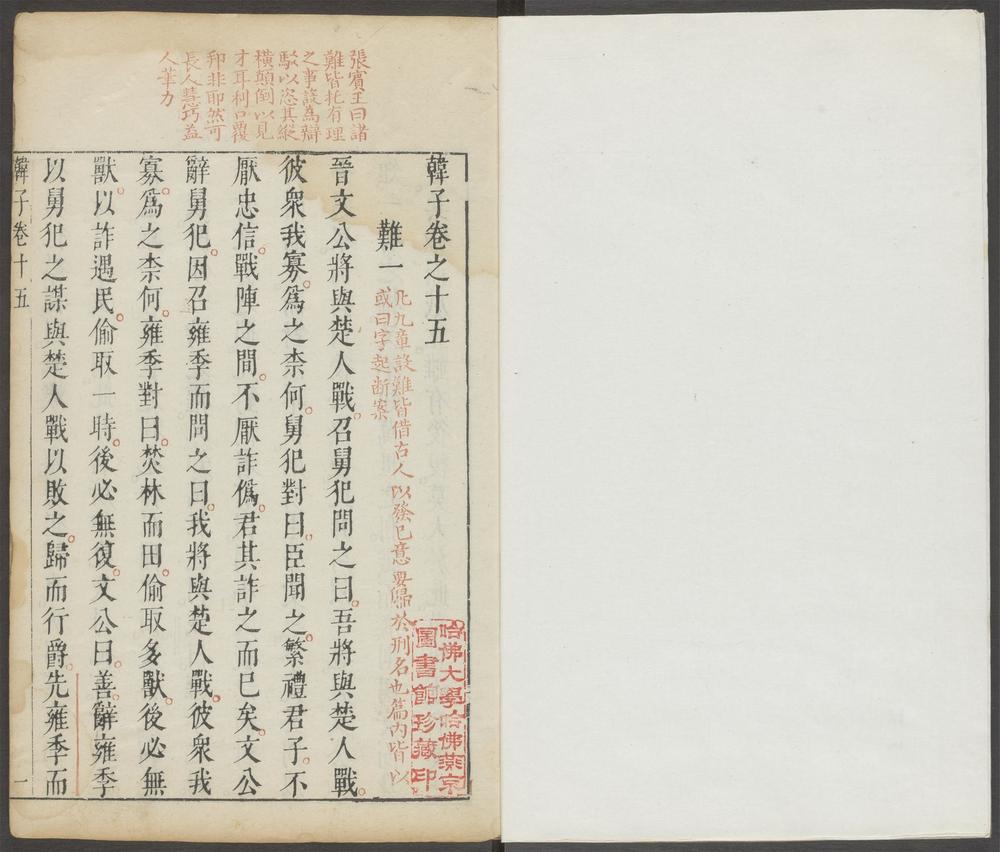 張賓王曰諸
難皆托有理
之事設為辯
駁以恣其縱
橫顛倒以見
才耳利口覆
邦非即然可
長人慧巧益
人筆力
韓子卷之十五
難一
凡九章設難皆借古人以發己意要歸於刑名也篇內皆以
或曰字起斷案
晉文公將與楚人戰。召舅犯問之曰。吾將與楚人戰。
彼衆我寡。爲之柰何。舅犯對曰。臣聞之。繁禮君子。不
厭忠信。戰陣之間。不厭詐僞。君其詐之而已矣。文公
辭舅犯。因召雍季而問之曰。我將與楚人戰。彼衆我
寡。爲之柰何。雍季對曰。焚林而田。偷取多獸。後必無
獸。以詐遇民。偷取一時。後必無復。文公曰。善。辭雍季
以舅犯之謀與楚人戰以敗之。歸而行爵。先雍季而
韓子卷十五
一
哈佛大學哈佛燕京
圖書館珍藏印